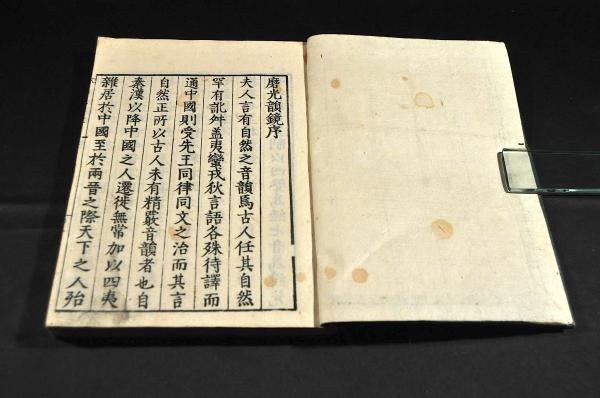 磨光韻鏡序
夫人言有自然之音韻焉古人任其自然
罕有訛舛蓋夷蠻戎狄言語各殊待譯而
通中國則受先王同律同文之治而其言
自然正所以古人未有精覈音韻者也自
秦漢以降中國之人遷徙無常加以四夷
雜居於中國至於兩晉之際天下之人殆